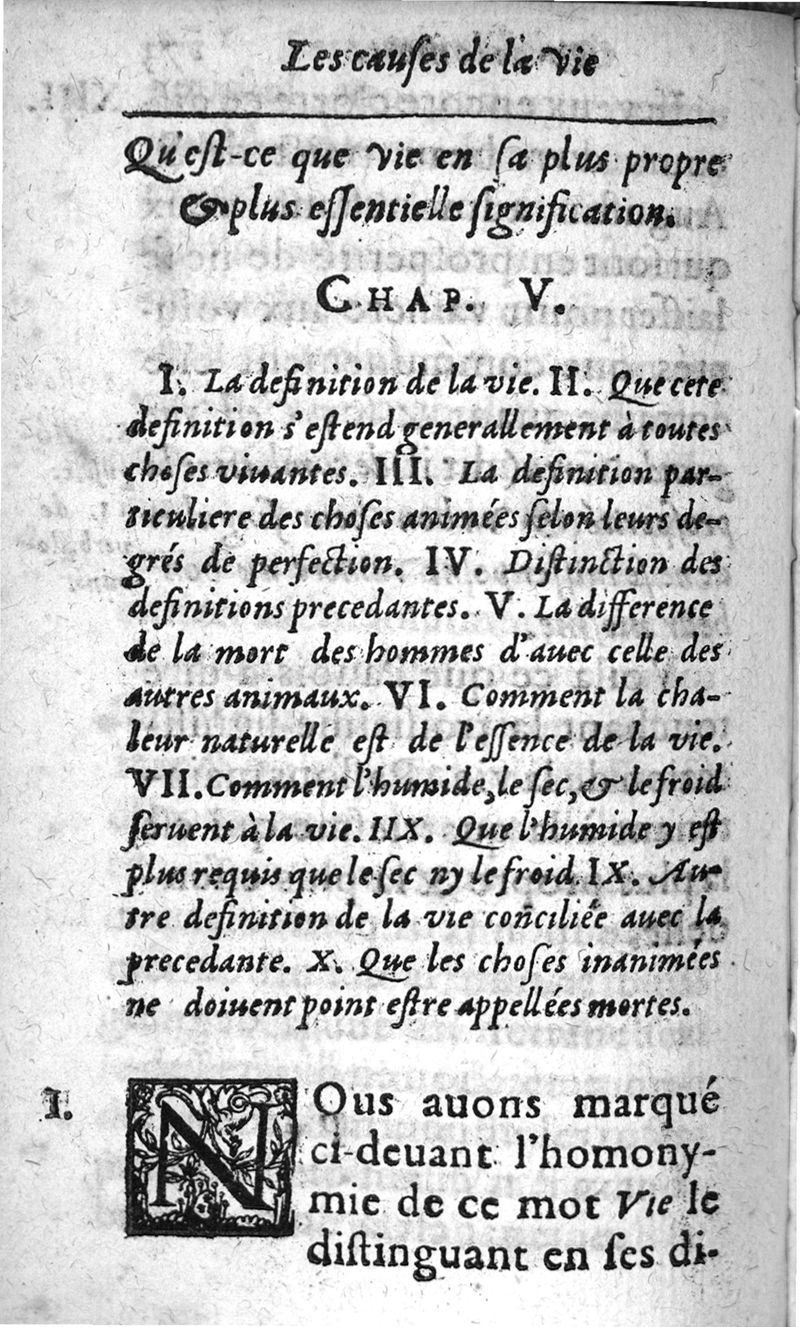 Les cauſes de la Vie
Qu'eſt-ce que Vie en ſa plus propre
& plus eſſentielle ſignification.
CHAP. V.
I. La definition de la vie. II. Que cete
definition s'eſtend generallement à toutes
choſes viuantes. III. La definition par-
ticuliere des choſes animées ſelon leurs de-
grés de perfection. IV. Diſtinction des
definitions precedantes. V. La difference
de la mort des hommes d'auec celle des
autres animaux. VI. Comment la cha-
leur naturelle eſt de l'eſſence de la vie.
VII. Comment l'humide, le ſec, & le froid
ſeruent à la vie. IIX. Que l'humide y eſt
plus requis que le ſec ny le froid. IX. Au-
tre definition de la vie conciliée auec la
precedante. X. Que les choſes inanimées
ne doiuent point eſtre appellées mortes.
I. NOus auons marqué
ci-deuant l'homony-
mie de ce mot Vie le
diſtinguant en ſes di-